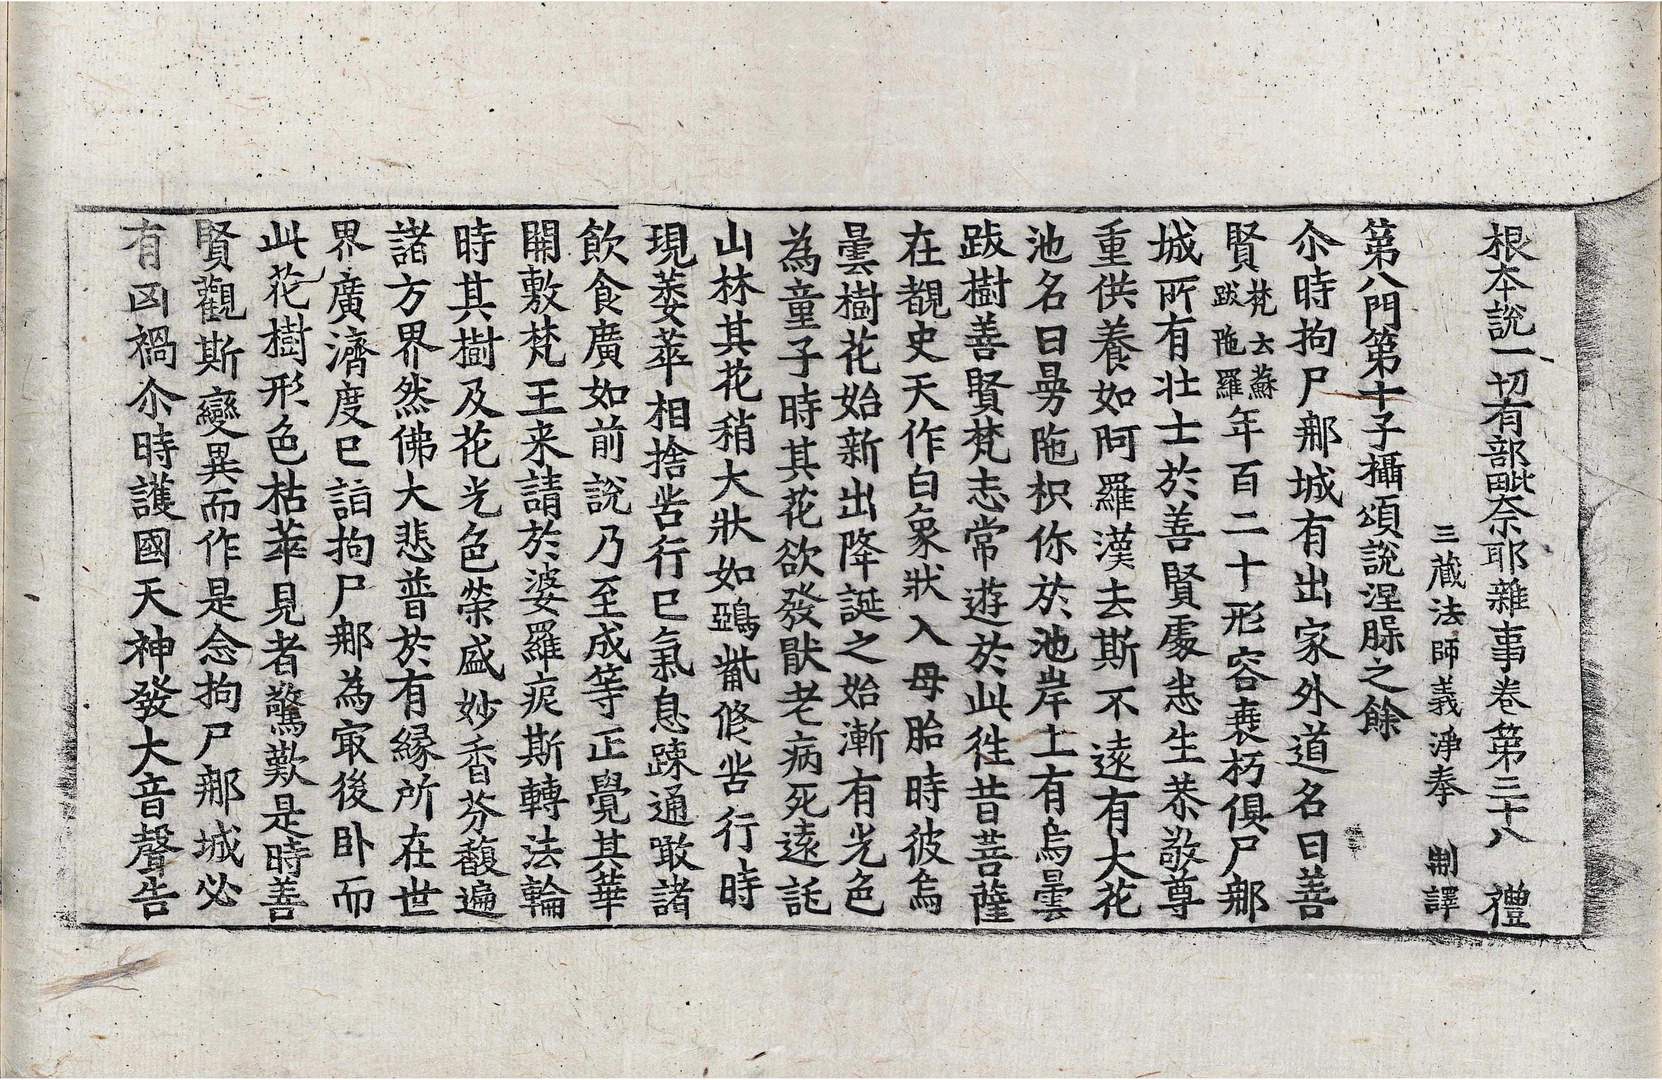 根本說一切有部毗奈耶雜事卷第三十八 禮
三藏法師義淨奉 制譯
第八門第十子攝頌說涅槃之餘
尒時拘尸那城有出家外道名曰善
賢梵云蘇跋陁羅年百二十形容衰朽俱尸那
城所有壯士於善賢處悉生恭敬尊
重供養如阿羅漢去斯不遠有大花
池名曰曼陁枳你於池岸上有烏曇
跋樹善賢梵志常遊於此徃昔菩薩
在覩史天作白象狀入母胎時彼烏
曇樹花始新出降誕之始漸有光色
為童子時其花欲發猒老病死遠託
山林其花稍大狀如鵶觜修苦行時
現萎萃相捨苦行已氣息踈通噉諸
飲食廣如前說乃至成等正覺其華
開敷梵王来請於婆羅痆斯轉法輪
時其樹及花光色榮盛妙香芬馥遍
諸方界然佛大悲普於有緣所在世
界廣濟度已詣拘尸那為㝡後卧而
此花樹形色枯萃見者驚歎是時善
賢觀斯變異而作是念拘尸那城必
有凶禍尒時護國天神發大音聲告